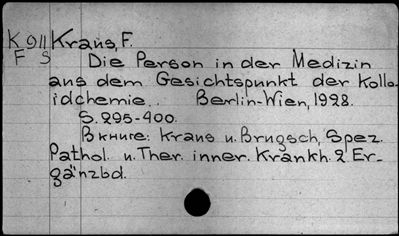 K 911 Kraus, F.
F S
Die Person in der Medizin
aus dem Gesichtspunkt der Kollo-
idchemie.. Berlin-Wien, 1928.
S. 295-400.
В книге: Kraus u. Brugsch, Spez.
Pathol. u. Ther. inner. Krankh. 2 Er-
gänzbd.